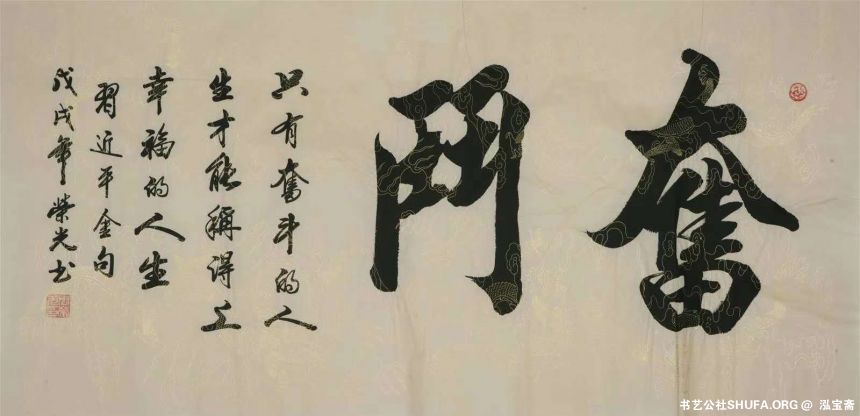 奮鬥
只有奮斗的人
生才能稱得上
幸福的人生
習近平金句
戊戌年榮光书
书艺公社SHUFA.ORG @ 泓宝斋